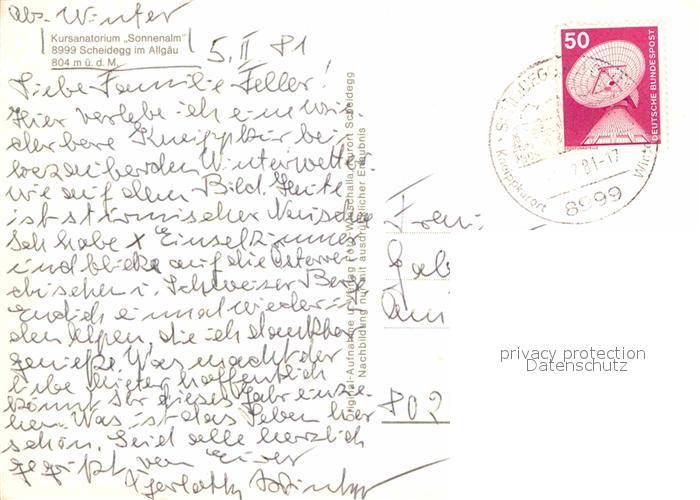 Abs. Winter
Kursanatorium „Sonnenalm“
8999 Scheidegg im Allgäu
804 m ü. d. M.
5. II 81
Liebe Familie Feller!
Hier verlebe ich eine wun-
derbare Kneippkur bei
bezauberndem Winterwetter
wie auf dem Bild. Heute
ist stürmischer Neuschnee
Ich habe x Einzelzimmer
und blicke auf die österrei
chischen u. Schweizer Berge
Endlich einmal wieder in
den Alpen, die ich dankbar
genieße. Was macht der
liebe Dieter hoffentlich
könnt ihr dieses Jahr
Was ist das Leben hier
schön. Seid alle herzlich
gegrüßt von Eurer
Winter
Original-Aufnahme u. Verlag Foto Kurort Scheidegg
Nachbildung nur mit ausdrücklicher Erlaubnis
50
DEUTSCHE BUNDESPOST
Kneippkurort
8999
2.81-17
Frau
Gab
802
privacy protection
Datenschutz